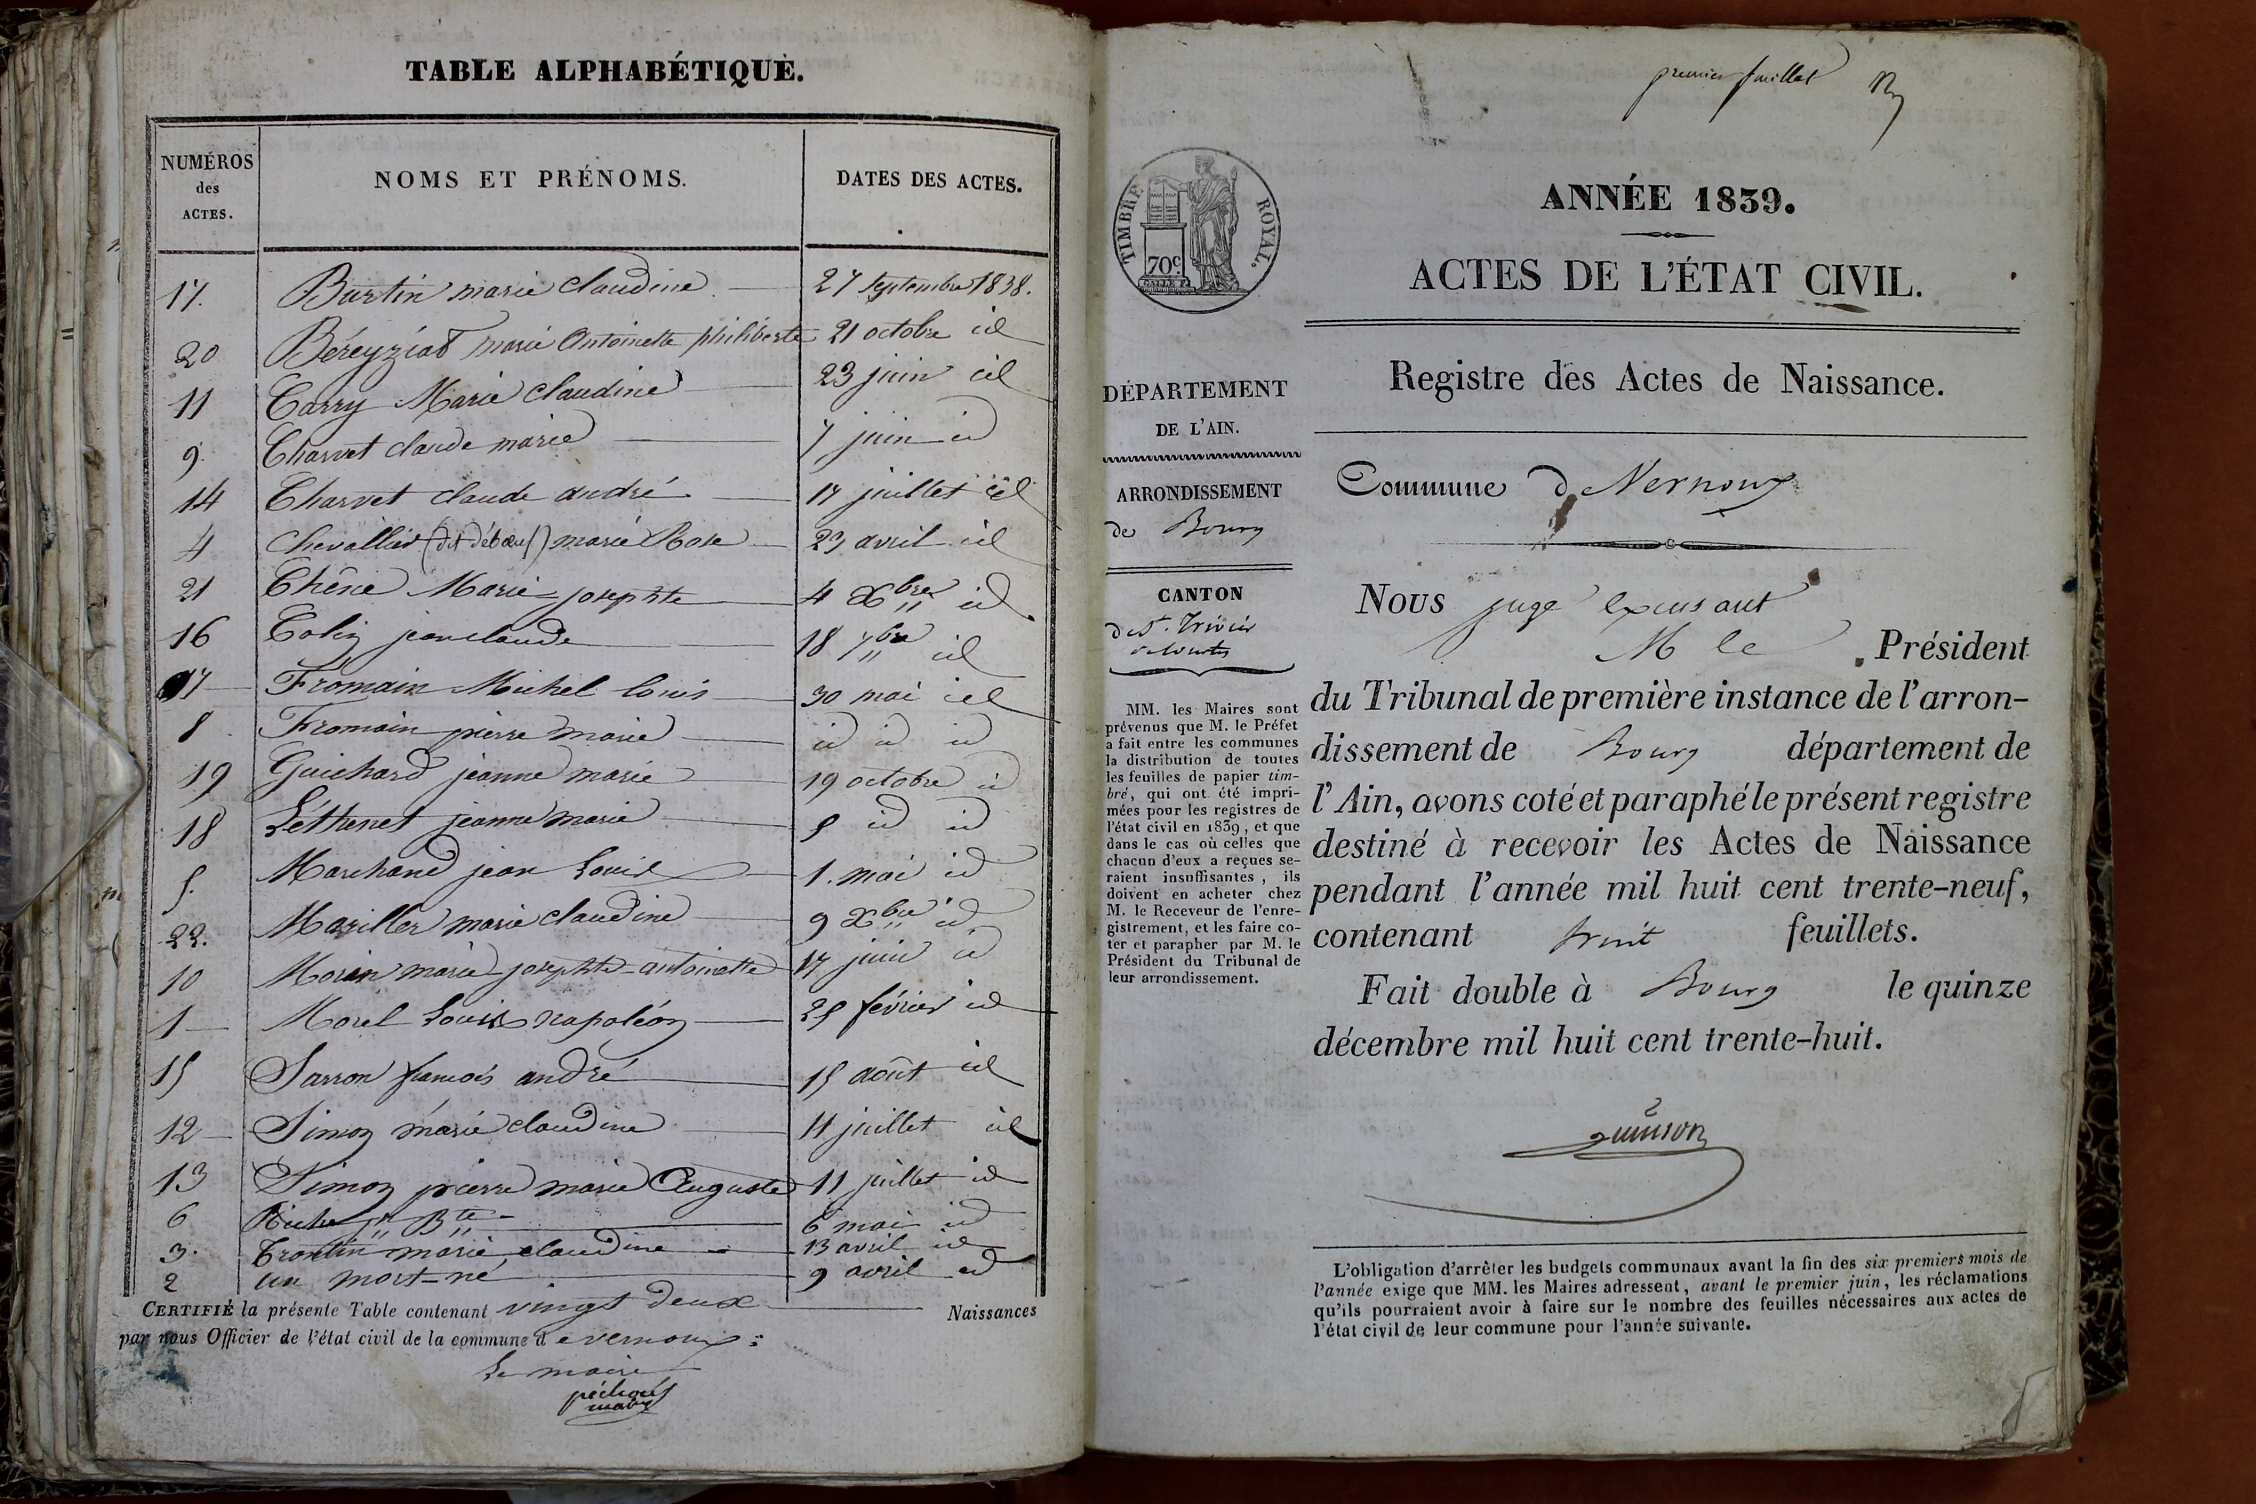 TABLE ALPHABÉTIQUE.
NUMÉROS des ACTES. NOMS ET PRÉNOMS. DATES DES ACTES.
17. Burtin marie claudine 27 septembre 1838.
20 Béreyziat marie Antoinette philiberte 21 octobre id
11 Carry Marie claudine 23 juin id
9. Charvet claude marie 7 juin id
14 Charvet claude andré 17 juillet id
4 Chevallier (dit débœuf) marie Rose 23 avril id
21 Chêne Marie josephte 4 Xbre id
16 Colin jean claude 18 7bre id
7 Fromain Michel louis 30 mai id
8 Fromain pierre marie id id id
19 Guichard jeanne marie 19 octobre id
18 Léthenet jeanne marie 5 id id
5. Marchand jean Louis 1. mai id
22. Mariller marie claudine 9 Xbre id
10 Morin marie josephte antoinette 17 juin id
1 Morel Louis napoléon 25 février id
15 Sarron francois andré 15 août id
12 Simon marie claudine 11 juillet id
13 Simon pierre marie Auguste 11 juillet id
6 Riche jn Bte 6 mai id
3. Trontin marie claudine 13 avril id
2 un mort-né 9 avril id
CERTIFIÉ la présente Table contenant vingt deux Naissances
par nous Officier de l'état civil de la commune de vernoux
Le maire
premier feuillet
TIMBRE ROYAL.
70c.
ANNÉE 1839.
ACTES DE L'ÉTAT CIVIL.
Registre des Actes de Naissance.
DÉPARTEMENT
DE L'AIN.
ARRONDISSEMENT
de Bourg
CANTON
de St. Trivier
de Courtes
MM. les Maires sont
prévenus que M. le Préfet
a fait entre les communes
la distribution de toutes
les feuilles de papier tim-
bré, qui ont été impri-
mées pour les registres de
l'état civil en 1839, et que
dans le cas où celles que
chacun d'eux a reçues se-
raient insuffisantes, ils
doivent en acheter chez
M. le Receveur de l'enre-
gistrement, et les faire co-
ter et parapher par M. le
Président du Tribunal de
leur arrondissement.
Commune de Vernoux
Nous juge excusant
M le Président
du Tribunal de première instance de l'arron-
dissement de Bourg département de
l'Ain, avons coté et paraphé le présent registre
destiné à recevoir les Actes de Naissance
pendant l'année mil huit cent trente-neuf,
contenant huit feuillets.
Fait double à Bourg le quinze
décembre mil huit cent trente-huit.
L'obligation d'arrêter les budgets communaux avant la fin des six premiers mois de
l'année exige que MM. les Maires adressent, avant le premier juin, les réclamations
qu'ils pourraient avoir à faire sur le nombre des feuilles nécessaires aux actes de
l'état civil de leur commune pour l'année suivante.